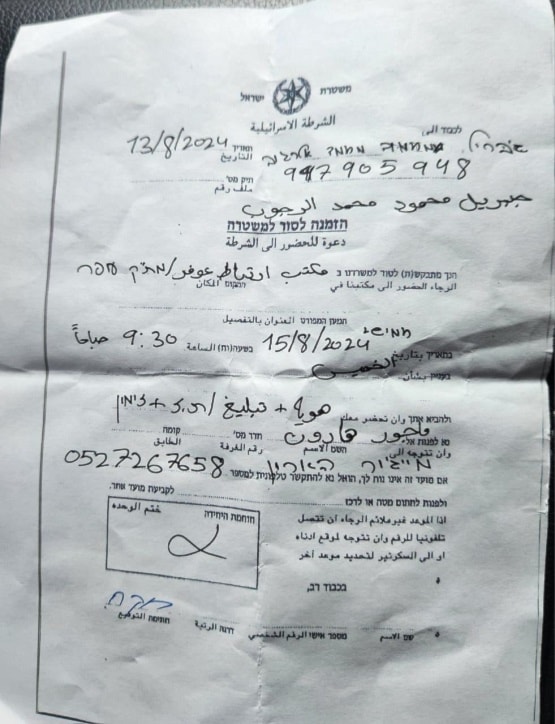 משטרת ישראל
الشرطة الاسرائيلية
לכבוד الى
תאריך 13/8/2024
التاريخ
947905948
תיק מס'
ملف رقم
جبريل محمود محمد الرجوب
הזמנה לסור למשטרה
دعوة للحضور الى الشرطة
הנך מתבקש(ת) לסור למשרדנו ב مكتب ارتباط عوفر/מת"ק עפר
الرجاء الحضور الى مكتبنا في המקום المكان
המען המפורט العنوان بالتفصيل
חמישי
בתאריך بتاريخ 15/8/2024 בשעה(ות) الساعة 9:30 صباحاً
الخميس
בעניין بشأن
ולהביא אתך وان تحضر معك هوية + تبليغ /ת.ז + זימון
נא לפנות אל ماجور هارون חדר מס' קומה
وان تتوجه الى השם الاسم رقم الغرفة الطابق
מייג'ור הארון 0527267658
אם מועד זה אינו נוח לך, הואל נא להתקשר טלפונית למספר
ולפנות לחתום מטה או לרכז לקביעת מועד אחר.
اذا الموعد غير ملائم الرجاء ان تتصل
تلفونيا للرقم وان تتوجه لموقع ادناه
او الى السكرتير لتحديد موعد آخر
חותמת היחידה ختم الوحده
בכבוד רב,
שם الاسم מספר אישי الرقم الشخصي דרגה الرتبة חתימה التوقيع